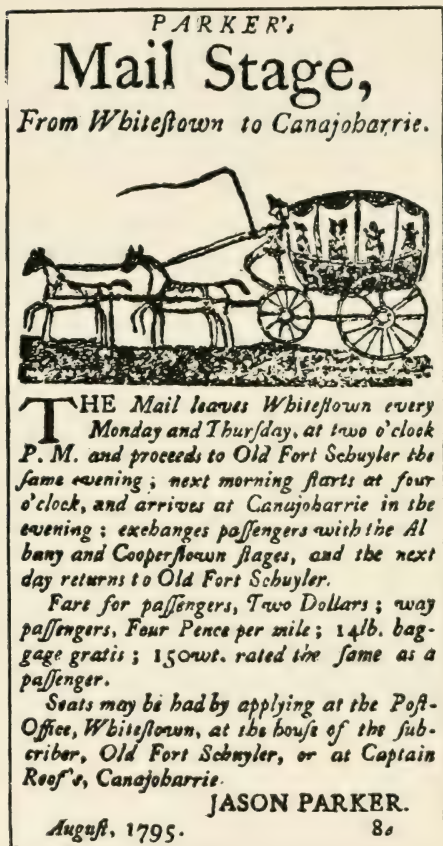 PARKER's
Mail Stage,
From Whiteſtown to Canajoharrie.
THE Mail leaves Whiteſtown every
Monday and Thurſday, at two o'clock
P. M. and proceeds to Old Fort Schuyler the
ſame evening; next morning ſtarts at four
o'clock, and arrives at Canajoharrie in the
evening; exchanges paſſengers with the Al
bany and Cooperſtown ſtages, and the next
day returns to Old Fort Schuyler.
Fare for paſſengers, Two Dollars; way
paſſengers, Four Pence per mile; 14lb. bag-
gage gratis; 150wt. rated the ſame as a
paſſenger.
Seats may be had by applying at the Poſt-
Office, Whiteſtown, at the houſe of the ſub-
criber, Old Fort Schuyler, or at Captain
Roof's, Canajoharrie.
JASON PARKER.
Auguſt, 1795. 80